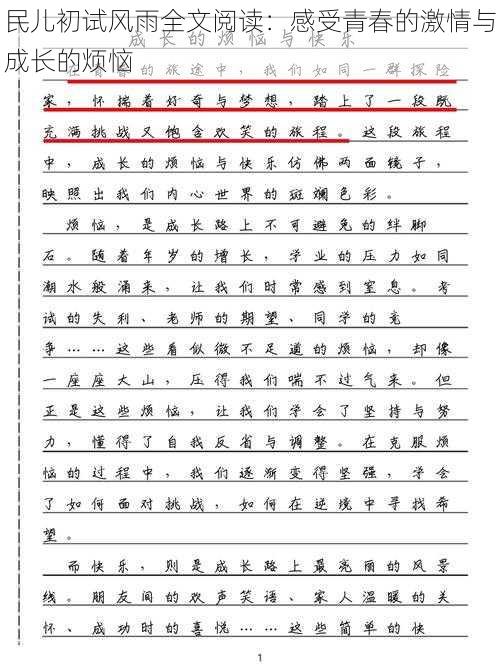 民儿初试风雨全文阅读：感受青春的激情与
成长的烦恼
成长的烦恼与快乐
在青春的旅途中，我们如同一群探险
家，怀揣着好奇与梦想，踏上了一段既
充满挑战又饱含欢笑的旅程。这段旅程
中，成长的烦恼与快乐仿佛两面镜子，
映照出我们内心世界的斑斓色彩。
烦恼，是成长路上不可避免的绊脚
石。随着年岁的增长，学业的压力如同
潮水般涌来，让我们时常感到窒息。考
试的失利、老师的期望、同学的竞
争……这些看似微不足道的烦恼，却像
一座座大山，压得我们喘不过气来。但
正是这些烦恼，让我们学会了坚持与努
力，懂得了自我反省与调整。在克服烦
恼的过程中，我们逐渐变得坚强，学会
了如何面对挑战，如何在逆境中寻找希
望。
而快乐，则是成长路上最亮丽的风景
线。朋友间的欢声笑语、家人温暖的关
怀、成功时的喜悦……这些简单的快
1